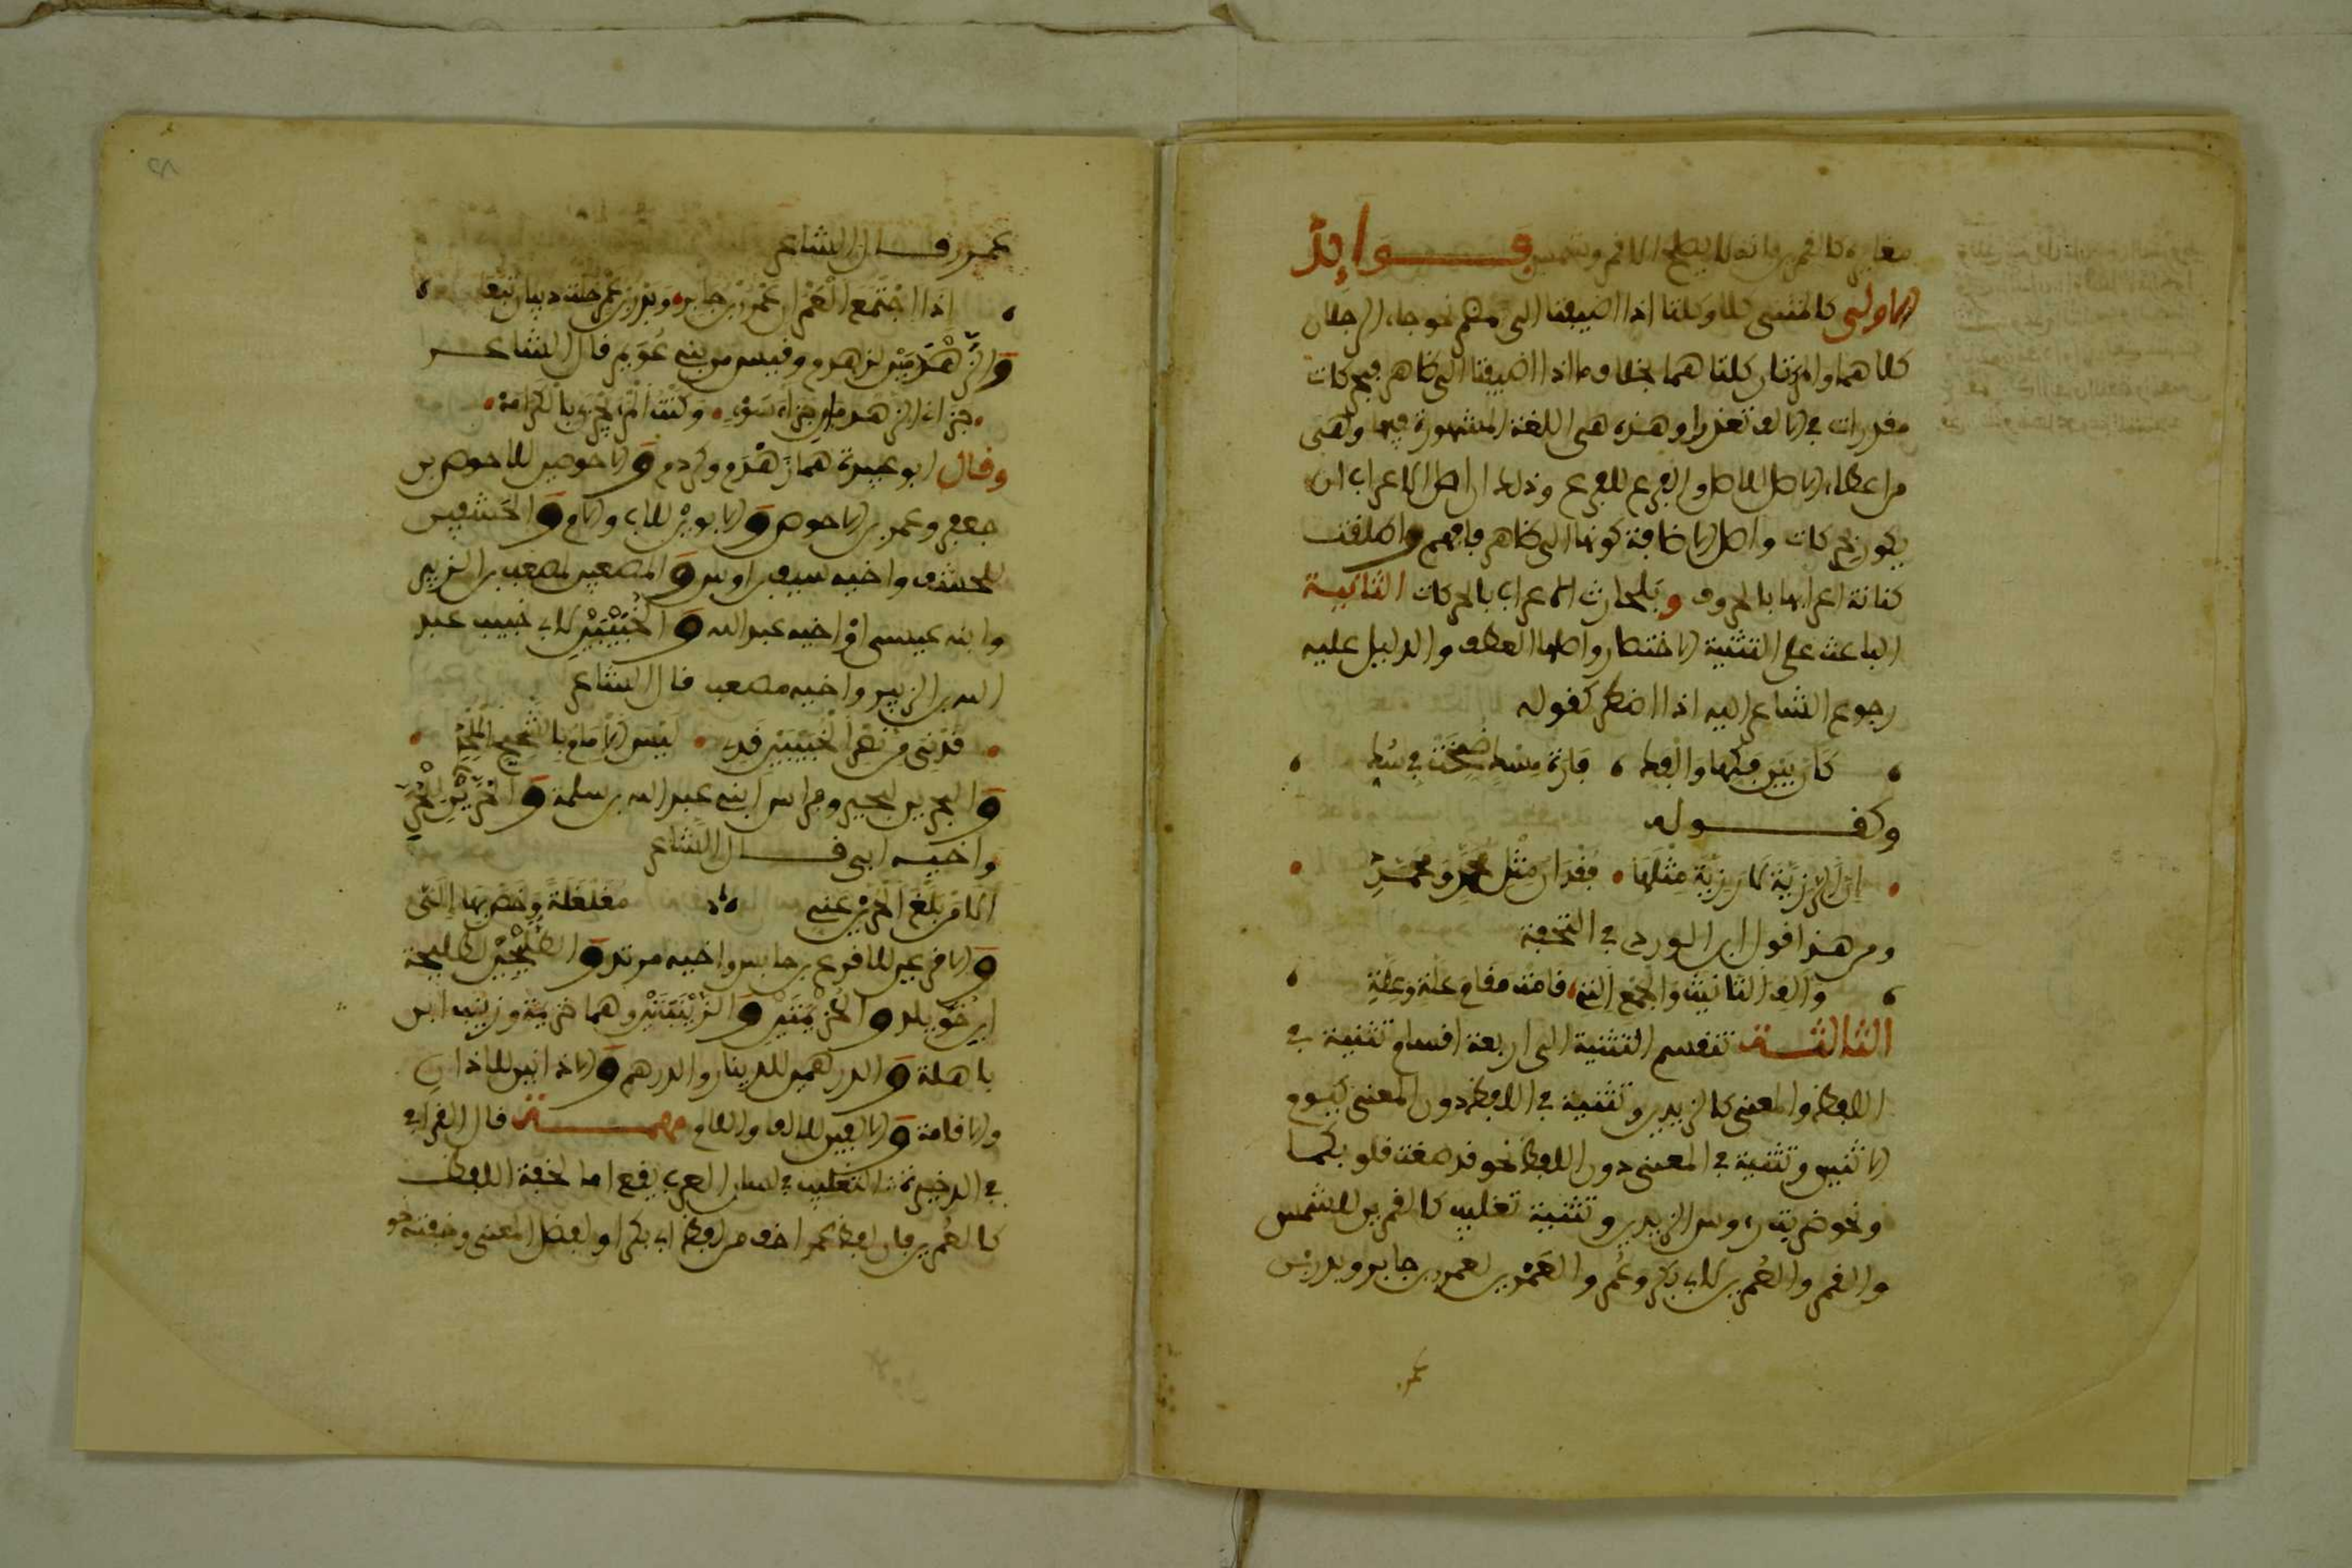 مغايرة كالقمرين فانه لا يصلح الا قمر وشمس فـوايد
الاولى كالمثنى كلا وكلتا اذا اضيفتا الى مضمر نحو جاء الرجلان
كلاهما والمرأتان كلتاهما بخلاف ما اذا اضيفتا الى ظاهر فبحركات
مقدرات في الالف تعذرا وهذه هي اللغة المشهورة فيها وهي
من اعطاء الاصل للاصل والفرع للفرع وذلك ان اصل الاعراب ان
يكون بحركات واصل الاضافة كونها الى ظاهر فافهم واطلقت
كنانة اعرابها بالحروف وبلحارث الاعراب بالحركات الثانية
الباعث على التثنية الاختصار واصلها العطف والدليل عليه
رجوع الشاعر اليه اذا اضطر كقوله
كَأن بين فكها والفك فارة مسك ضمخت في سك
وكقـوله
ان الرزية لا رزية مثلها فقدان مثل محمد ومحمد
ومن هذا قول ابن الوردي في التحفة
والف التانيث والجمع الذي قامت مقام علة وعلة
الثالثـة تنقسم التثنية الى اربعة اقسام تثنية في
اللفظ والمعنى كالزيدين وتثنية في اللفظ دون المعنى كيوم
الاثنين وتثنية في المعنى دون اللفظ نحو قد صغت قلوبكما
ونحو ضربت رءوس الزيدين وتثنية تغليب كالقمرين للشمس
والقمر والعُمرين لابي بكر وعُمر والعَمْرين لعمرو بن جابر وبدر بن
عمر
عمرو قـال الشاعر
اذا اجتمع العَمْران عَمْرو بن جابر وبدر بن عمرو خلت ذبيان تبعا
والزهدمين لزهدم وقيس من بني عُوَير قال الشاعـر
جزاني الزهدمان جزاء سوء وكنت المرء يجزى بالكرامة
وقال ابو عبيدة هما زهدم وكردم والاحوصين للاحوص بن
جعفر وعمرو بن الاحوص والابوين للاب والام والحنتفين
للحنتف واخيه سيف بن اوس والمصعبين لمصعب بن الزبير
وابنه عيسى او اخيه عبد الله والخُبَيْبَيْنِ لابي خبيب عبد
الله بن الزبير واخيه مصعب قال الشاعر
قدني من نصر الخبيبين قدي ليس الامام بالشحيح الملحد
والبجيرين لبجير وفراس ابني عبد الله بن سلمة والحرين للحر
واخيه ابي قـال الشاعر
الا من يبلغ الحرين عني مغلغلة وخص بها ابيا
والاقرعين للاقرع بن حابس واخيه مرثد والطليحتين لطليحة
ابن خويلد والخزيمتين والزبينتين وهما خزيمة وزبينة ابن
باهلة والدرهمين للدينار والدرهم والاذانين للاذان
والاقامة والالفين للالف واللام مهمـة قال القرافي
في الذخيرة التغليب في لسان العرب يقع اما لخفة اللفظ
كالعُمرين فان لفظ عمر اخف من لفظ ابي بكر او لفضل المعنى وخفته نحو